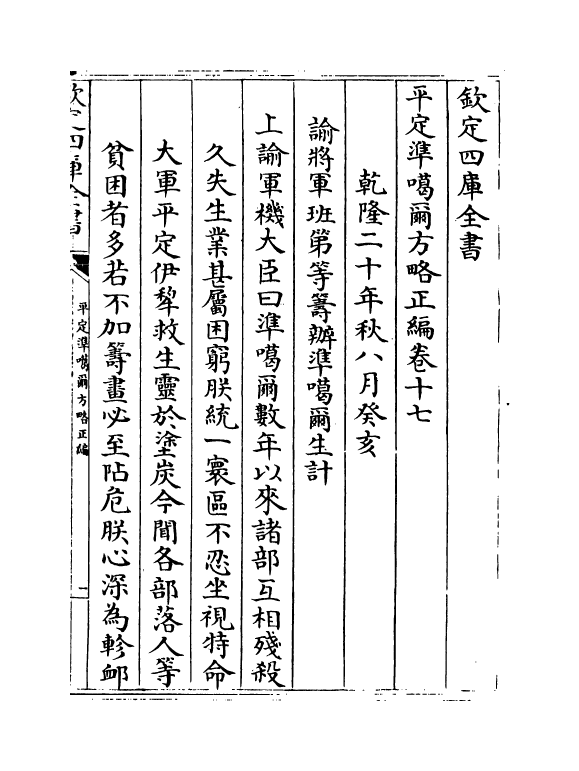 欽定四庫全書
平定準噶爾方略正編卷十七
乾隆二十年秋八月癸亥
諭將軍班第等籌辦準噶爾生計
上諭軍機大臣曰準噶爾數年以來諸部互相殘殺
久失生業甚屬困窮朕統一寰區不忍坐視特命
大軍平定伊犂救生靈於塗炭今聞各部落人等
貧困者多若不加籌畫必至阽危朕心深為軫卹
欽定四庫全書
平定準噶爾方略正編
一